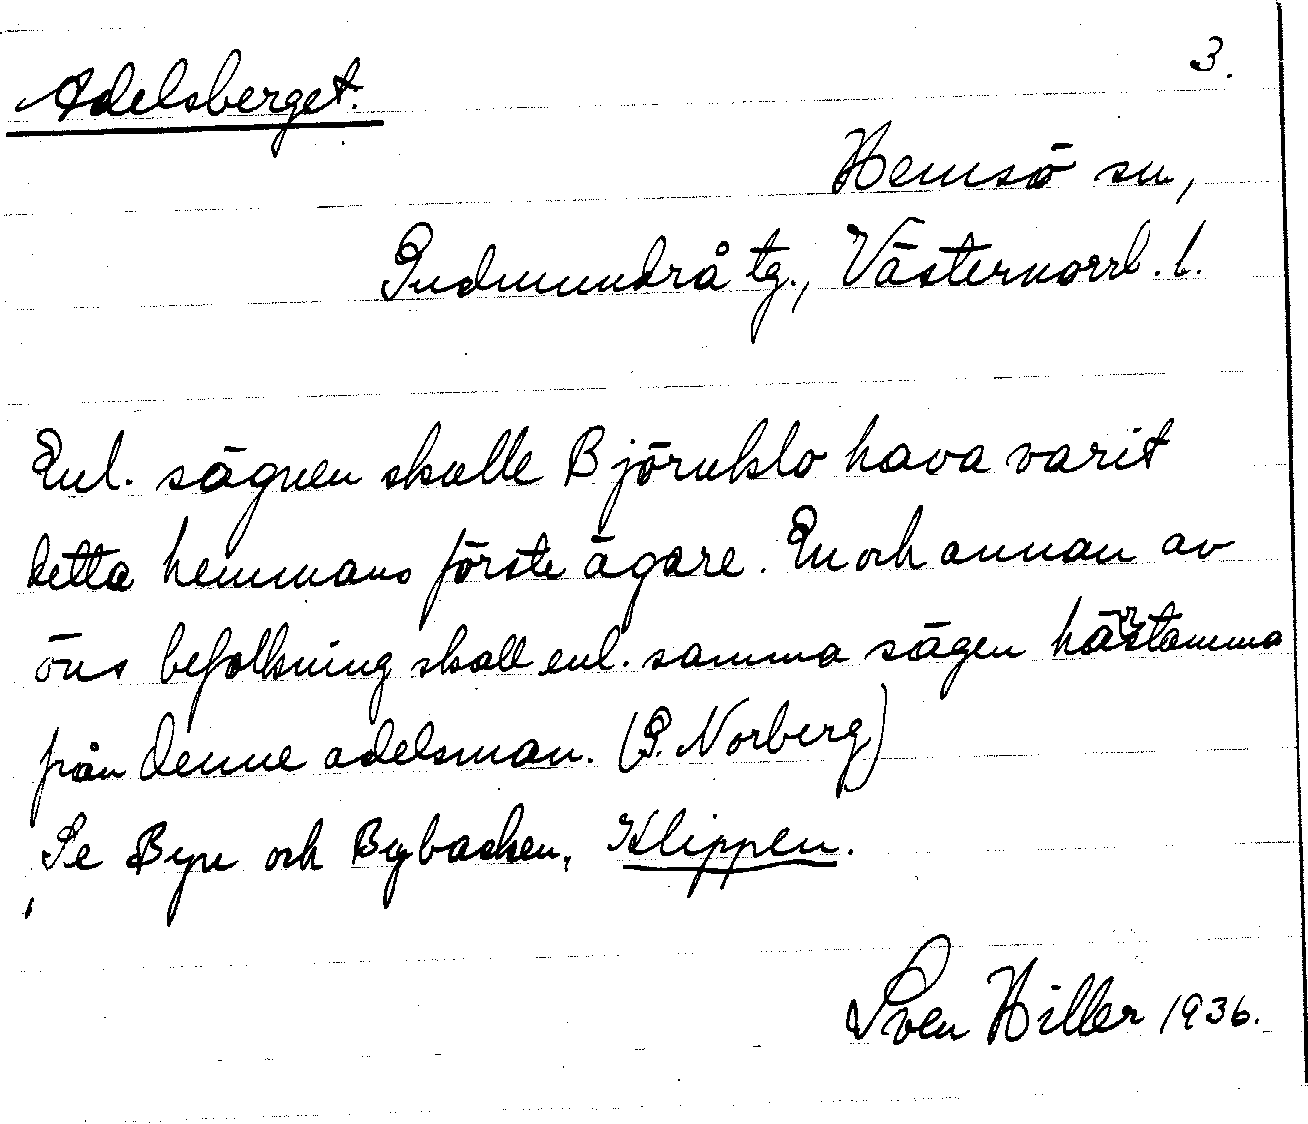 3.
Adelsberget.
Hemsö sn,
Gudmundrå tg., Västernorrl. l.
Enl. sägnen skulle Björnklo hava varit
detta hemmans förste ägare. En och annan av
öns befolkning skall enl. samma sägen härstamma
från denne adelsman. (P. Norberg)
Se Byn och Bybacken, Klippen.
Sven Hiller 1936.